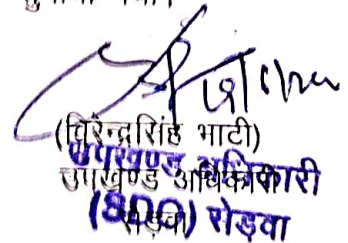 (विरेन्द्रसिंह भाटी)
उपखण्ड अधिकारी
उपखण्ड अधिकारी
(SDO) सेड़वा
सेड़वा